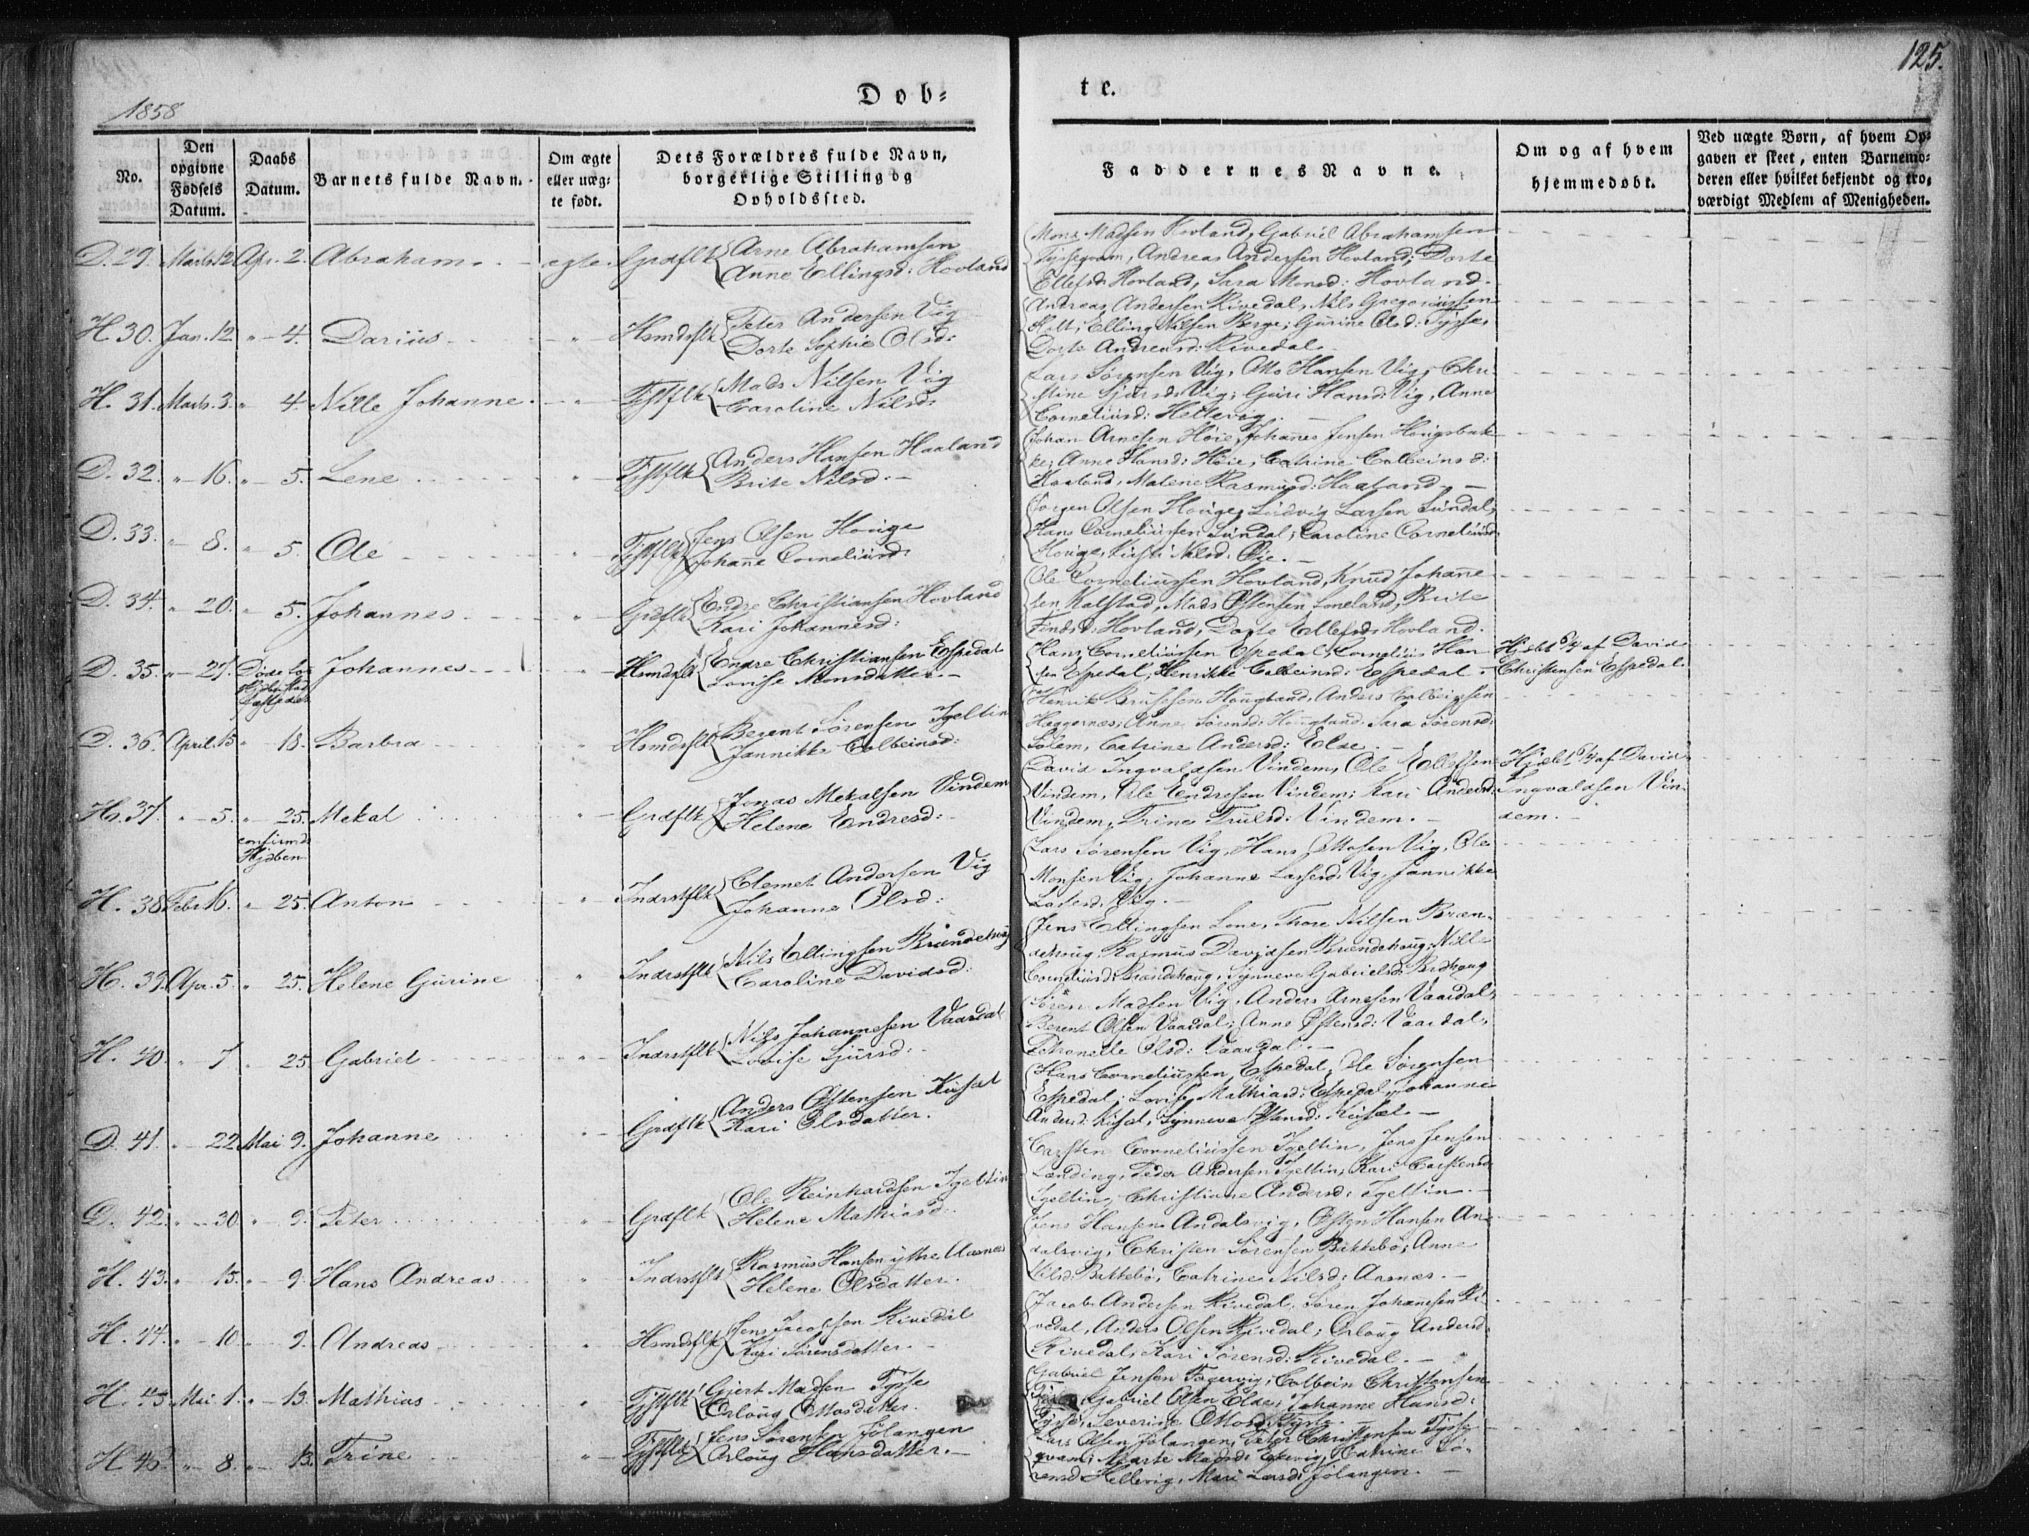 125.
1858
Døb-
te.
No.
Den opgivne Fødsels Datum.
Daabs Datum.
Barnets fulde Navn.
Om ægte eller uægte født.
Dets Forældres fulde Navn, borgerlige Stilling og Opholdssted.
Faddernes Navne.
Om og af hvem hjemmedøbt.
Ved uægte Børn, af hvem Opgaven er skeet, enten Barnemoderen eller hvilket bekjendt og troværdigt Medlem af Menigheden.
D. 29. Marts 12 Apr. 2. Abraham. ægte. Grdflk Arne Abrahamsen
Anne Ellingsd: Hovland
Mons Madsen Hovland, Gabriel Abrahamsen
Andreas Andersen Hovland; Dorte
Ellefsd: Hovland, Sara Monsd: Hovland.
H. 30. Jan. 12. " 4. Darius " Hsmdsflk Peter Andersen Vig
Dorte Sophie Olsd:
Andreas Andersen Rivedal, Nils Gregoriussen
Elling Nilsen Berge; Gurine Olsd: Tysse,
Dorte Andreasd: Rivedal.
H. 31. Marts. 3. " 4. Nille Johanne. " Tjstflk Mads Nilsen Vig
Caroline Nilsd:
Lars Sørensen Vig, Otto Hansen Vig, Chri
stine Sjursd: Vig; Guri Hansd: Vig, Anne
Corneliusd: Hellevig.
D. 32. " 16. " 5. Lene " Tjstflk Anders Hansen Haaland
Brite Nilsd.
Johan Arnesen Høie, Johannes Jensen Hougsbak
ke; Anne Hansd: Høie, Catrine Colbeinsd:
Haaland, Malene Rasmusd: Haaland.
D. 33. " 8. " 5. Ole " Tjstflk Jens Olsen Houge
Johanne Corneliusd:
Jørgen Olsen Houge, Ludvig Larsen Sundal,
Hans Corneliussen Sundal; Caroline Corneliusd
Houge, Nilsd: Øie.
D. 34. " 20. " 5. Johannes " Grdflk Endre Christiansen Hovland
Kari Johannesd:
Ole Corneliussen Hovland, Knud Johanne
sen Kalstad, Mads Østensen Loneland, Brite
Findsd: Hovland, Dorte Ellefsd: Hovland.
D. 35. " 27. Døde Johannes " Hsmdsflk Endre Christiansen Espedal
Lovise Monsdatter.
Hans Corneliussen Espedal, Cornelius Han
sen Espedal, Henrikke Colbeinsd: Espedal.
Hjdbt af David
Christensen Espedal.
D. 36. April. 15 " 18. Barbra " Hsmdsflk Berent Sørensen Igeltin
Jannikke Colbeinsd:
Henrik Hougland, Anders Colbeinsen
Heggernæs; Anne Sørensd: Hougland, Sara Sørensd:
Solem, Catrine Andersd: Elde.
H. 37. " 5. " 25. Mekal " Grdflk Jonas Mekalsen Vindem
Helene Endresd:
confirmd
Hjdben
David Ingvaldsen Vindem, Ole Ellefsen
Vindem, Ole Endresen Vindem; Kari Andersd:
Vindem, Trine Trulsd: Vindem.
Hjdbt af David
Ingvaldsen Vin
dem.
H. 38 Febr. 16. " 25. Anton " Indrstflk Clemet Andersen Vig
Johanne Olsd:
Lars Sørensen Vig, Hans Ottosen Vig, Ole
Monsen Vig; Johanne Lassesd: Vig, Jannikke
Vig.
H. 39. Apr. 5. " 25. Helene Gurine " Indrstflk Nils Ellingsen Brændehoug
Caroline Davidsd:
Jens Ellingsen Lone, Thore Nilsen Bræn
dehoug, Rasmus Davidsen Brændehoug; Nille
Corneliusd: Brændehoug, Synneve Gabrielsd:
H. 40. " 7. " 25. Gabriel " Indrstflk Nils Johannesen Vaardal
Lovise Sjursd:
Søren Madsen Vig, Anders Arnesen Vaardal,
Berent Olsen Vaardal; Anne Østensd: Vaardal,
Petronelle Olsd: Vaardal.
D. 41. " 22. Mai 9. Johanne " Grdflk Anders Østensen
Kari Olsdatter.
Hans Corneliussen Espedal, Ole Sørensen
Espedal; Lovise Mathiasd: Espedal, Johanne
Andersd: Synneve Østensd:
D. 42. " 30. " 9. Peter " Grdflk Ole Reinhardsen Igeltin
Helene Mathiasd.
Carsten Corneliussen Igeltin, Jens Jensen
Lending, Peder Andersen Igeltin; Kari Carstensd.
Igeltin, Christiane Andersd: Igeltin.
H. 43. " 15. " 9. Hans Andreas " Indrstflk Rasmus Hansen ytre Aasnæs
Helene Olsdatter.
Jens Hansen Andalsvig, Østen Hansen An
dalsvig, Christen Sørensen Bekkebø; Anne
Nilsd: Bekkebø, Catrine Nilsd: Aasnæs.
H. 44. " 10. " 9. Andreas " Hsmdsflk Jens Jacobsen Rivedal
Kari Sørensdatter.
Jacob Andersen Rivedal, Søren Johannesen Ri
vedal, Anders Olsen Rivedal; Orloug Andersd:
Rivedal, Kari Sørensd: Rivedal.
H. 45. Mai 1. " 13. Mathias Tjstflk Gjert Madsen Tysse
Orloug Ottosdatter.
Gabriel Jensen Fagervig, Colbein Christensen
Gabriel Olsen Elde; Johanne Hansd:
Tysse, Severine Ottosd: Tysse.
H. 46. " 8. " 13. Trine " Tjstflk Jens Sørensen Jolangen
Orloug Hansdatter.
Lars Olsen Jolangen, Peter Christensen Tysse
qvam; Marte Madsd: Catrine Sø
rensd: Hellevig, Mari Larsd: Jolangen.